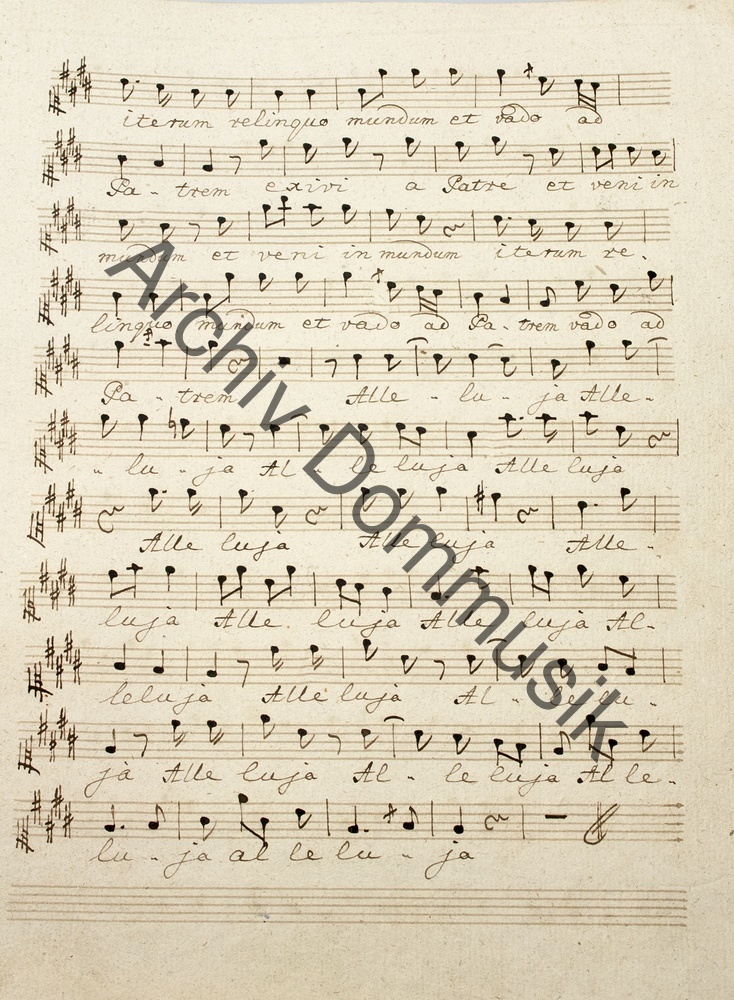 iterum relinquo mundum et vado ad
Pa - trem exivi a Patre et veni in
mundum et veni in mundum iterum re.
linquo mundum et vado ad Pa - trem vado ad
Pa - trem Alle - lu - ja Alle -
- lu - ja Al - le luja Alle luja
Alle luja Alle luja Alle -
luja Alle luja Alle luja Al -
leluja Alle luja Al - le lu -
ja Alle luja Al - le luja Al le -
lu - ja al le lu - ja
Archiv Dommusik